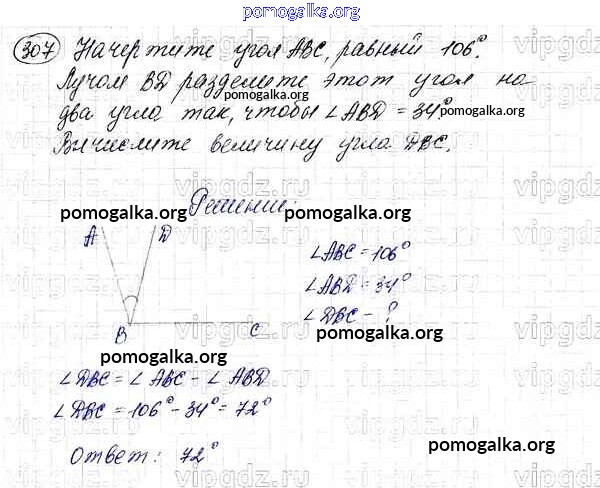 pomogalka.org
307 Начертите угол ABC, равный 106°.
Лучом BD разделите этот угол на
два угла так, чтобы ∠ABD = 34°
pomogalka.org
Вычислите величину угла DBC.
vipgdz.ru
Решение:
pomogalka.org pomogalka.org
A D
∠ABC = 106°
∠ABD = 34°
∠DBC - ?
B C
pomogalka.org
pomogalka.org
∠DBC = ∠ABC - ∠ABD
∠DBC = 106° - 34° = 72°
Ответ: 72°
pomogalka.org
vipgdz.ru